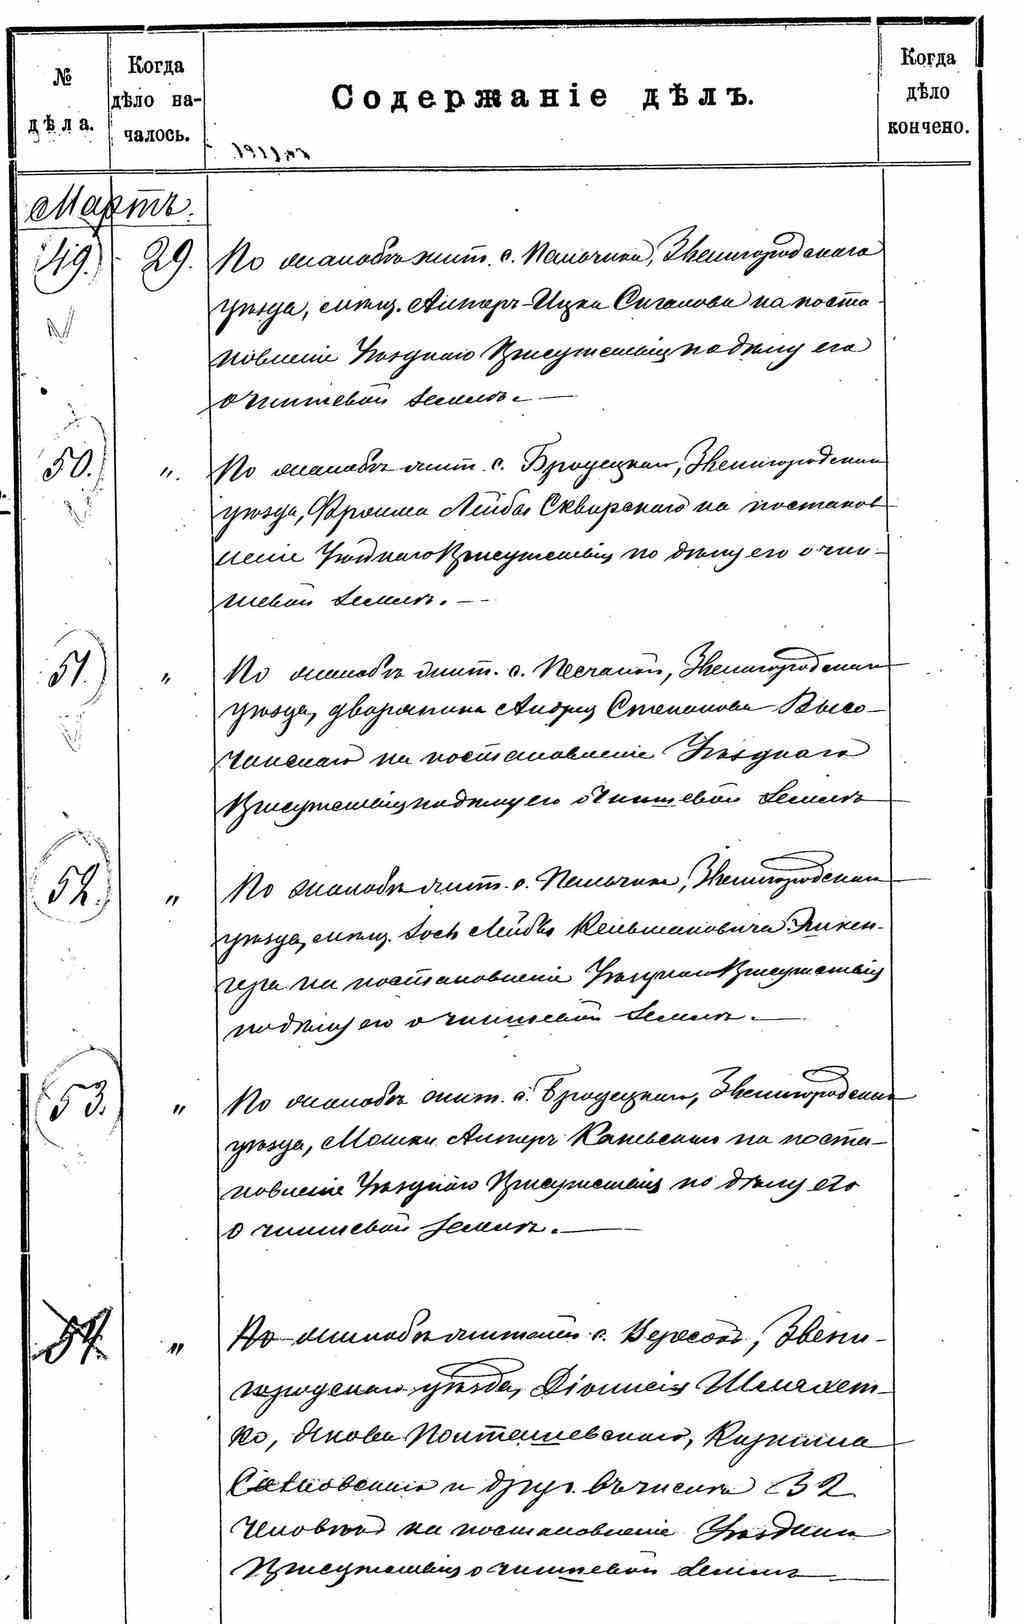 № дѣла.
Когда дѣло на-чалось.
Содержаніе дѣлъ.
Когда дѣло кончено.
Мартъ.
49. 29. По жалобѣ жит. с. Пальчика, Звенигородскаго
уѣзда, мѣщ. Ицки Сигалова на поста-
новленіе Уѣзднаго Присутствія по дѣлу его
о чиншевой землѣ.—
50. ". По жалобѣ жит. с. Бродецкаго, Звенигородскаго
уѣзда, Фроима Лейбы Сквирскаго на постанов
леніе Уѣзднаго Присутствія по дѣлу его о чин-
шевой землѣ.—
51. " По жалобѣ жит. с. Песчаной, Звенигородскаго
уѣзда, дворянина Андрея Степанова Высо-
чанскаго на постановленіе Уѣзднаго
Присутствія по дѣлу его о чиншевой землѣ
52. " По жалобѣ жит. с. Пальчика, Звенигородскаго
уѣзда, мѣщ. Лейбы Кельмановича
на постановленіе Уѣзднаго Присутствія
по дѣлу его о чиншевой землѣ.—
53. " По жалобѣ жит. с. Бродецкаго, Звенигородскаго
уѣзда, Мошки Каневскаго на поста-
новленіе Уѣзднаго Присутствія по дѣлу его
о чиншевой землѣ.—
54. " По жалобѣ жителей с. Звени-
городскаго уѣзда, Діонисія Шляхет-
ко, Якова
и друг. въ числѣ 32
человѣкъ на постановленіе Уѣзднаго
Присутствія о чиншевой землѣ